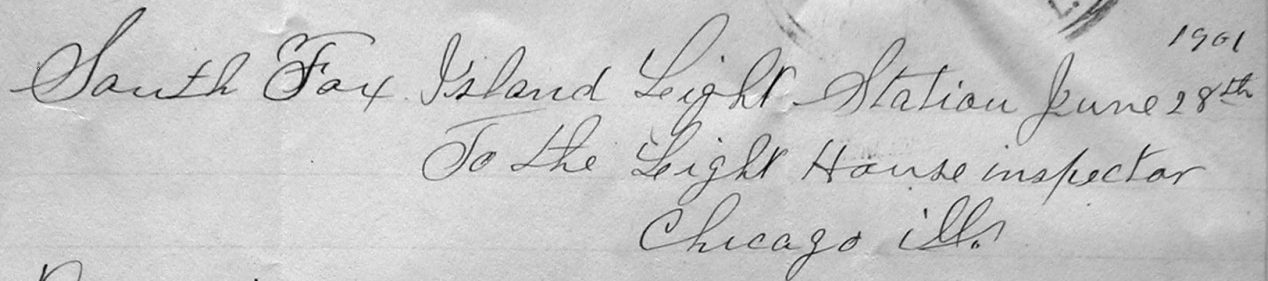 1901
South Fox Island Light Station June 28th
To the Light House inspector
Chicago ills.